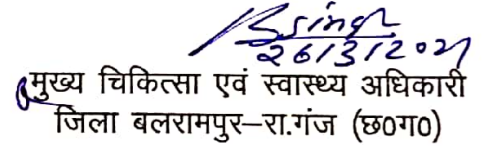 BSingh
26/3/2021
मुख्य चिकित्सा एवं स्वास्थ्य अधिकारी
जिला बलरामपुर–रा.गंज (छ0ग0)